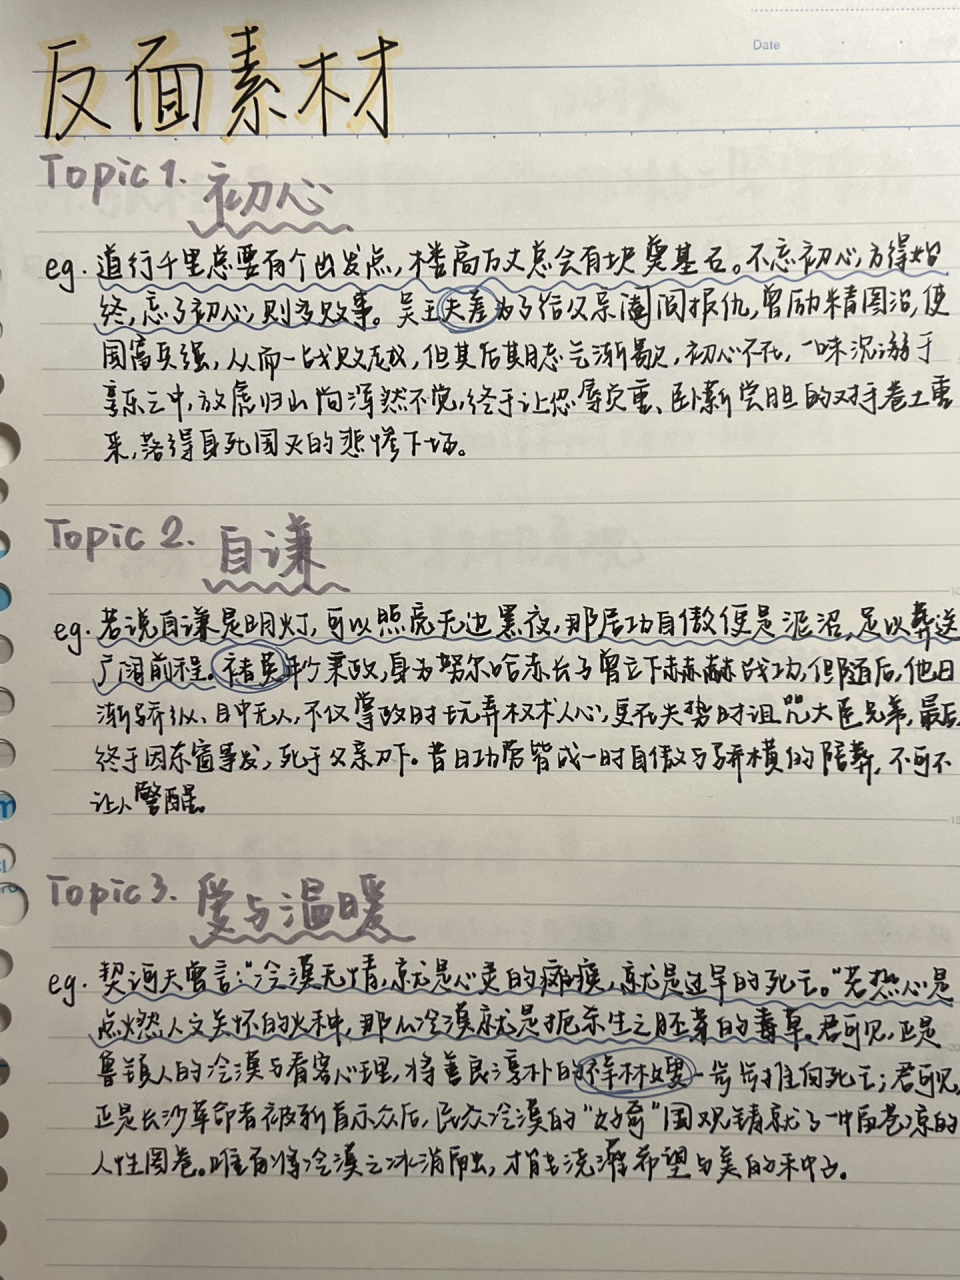 Date
反面素材
Topic 1. 初心
eg. 道行千里总要有个出发点，楼高万丈总会有块奠基石。不忘初心，方得始
终，忘了初心，则多败事。吴王夫差为了给父亲阖闾报仇，曾励精图治，使
国富兵强，从而一战败越，但其后其志气渐歇，初心不在，一味沉溺于
享乐之中，放虎归山尚浑然不觉，终于让忍辱负重、卧薪尝胆的对手卷土重
来，落得身死国灭的悲惨下场。
Topic 2. 自谦
eg. 若说自谦是明灯，可以照亮无边黑夜，那居功自傲便是泥沼，足以葬送
广阔前程。褚英年少秉政，身为努尔哈赤长子曾立下赫赫战功，但随后，他日
渐骄纵、目中无人，不仅掌政时玩弄权术人心，更在失势时诅咒大臣兄弟，最后
终于因东窗事发，死于父亲刀下。昔日功劳皆成一时自傲与骄横的陪葬，不可不
让人警醒。
Topic 3. 爱与温暖
eg. 契诃夫曾言："冷漠无情，就是心灵的瘫痪，就是过早的死亡。"若热心是
点燃人文关怀的火种，那么冷漠就是扼杀生之胚芽的毒草。君可见，正是
鲁镇人的冷漠与看客心理，将善良淳朴的祥林嫂一步步推向死亡；君可见，
正是长沙革命者被斩首示众后，民众冷漠的"好奇"围观铸就了一中国苍凉的
人性图卷。唯有将冷漠之冰消融，才能去浇灌希望与美的禾中。